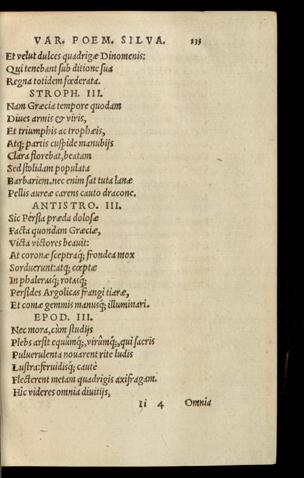 VAR. POEM. SILVA. 135
Et velut dulces quadrigæ Dinomenis:
Qui tenebant sub ditione sua
Regna totidem fœderata.
STROPH. III.
Nam Græcia tempore quodam
Diues armis & viris,
Et triumphis ac trophæis,
Atq; partis cuspide manubijs
Clara florebat, beatam
Sed stolidam populata
Barbariem. nec enim sat tuta lanæ
Pellis aureæ carens cauto dracone.
ANTISTRO. III.
Sic Persia præda dolosæ
Facta quondam Græciæ,
Victa victores beauit:
At coronæ sceptraq; frondea mox
Sorduerunt: atq; cœptæ
In phalerasq; rotasq;
Persides Argolicas frangi tiaræ,
Et comæ gemmis manusq; illuminari.
EPOD. III.
Nec mora, cùm studijs
Plebs arsit equûmq;, virûmq;, qui sacris
Puluerulenta nouarent rite ludis
Lustra: feruidisq; cautè
Flecterent metam quadrigis axifragam.
Hic videres omnia diuitijs,
Ii 4 Omnia